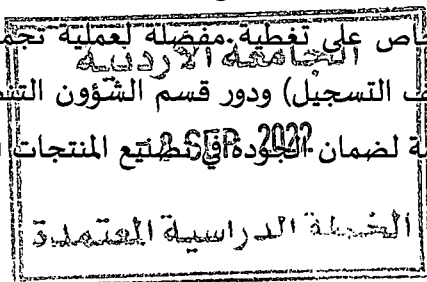 ـاص على تغطية مفصلة لعملية تجمـ
الجامعة الأردنية
ـف التسجيل) ودور قسم الشؤون التنـ
ـة لضمان الجودة في تصنيع المنتجات
SEP 2022
الخطة الدراسية المعتمدة